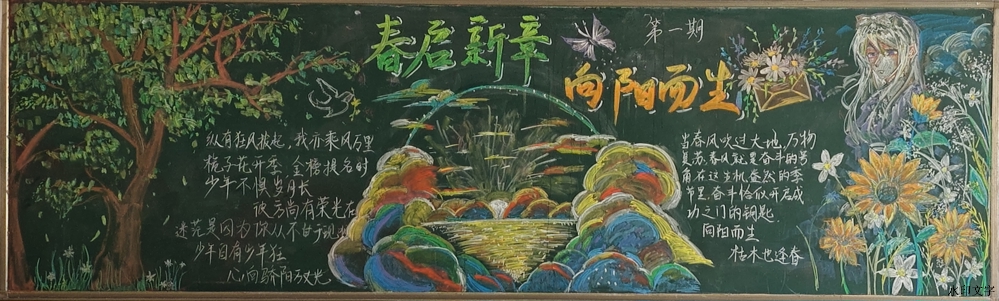 春启新章
第一期
向阳而生
纵有狂风拔起,我亦乘风万里
栀子花开季 金榜提名时
少年不惧岁月长
彼方尚有荣光在
迷茫是因为你从不甘于现状
少年自有少年狂
心向骄阳万丈光
当春风吹过大地,万物
复苏,春风就是奋斗的号
角在这生机盎然的季
节里,奋斗恰似开启成
功之门的钥匙
向阳而生
枯木也逢春
水印文字